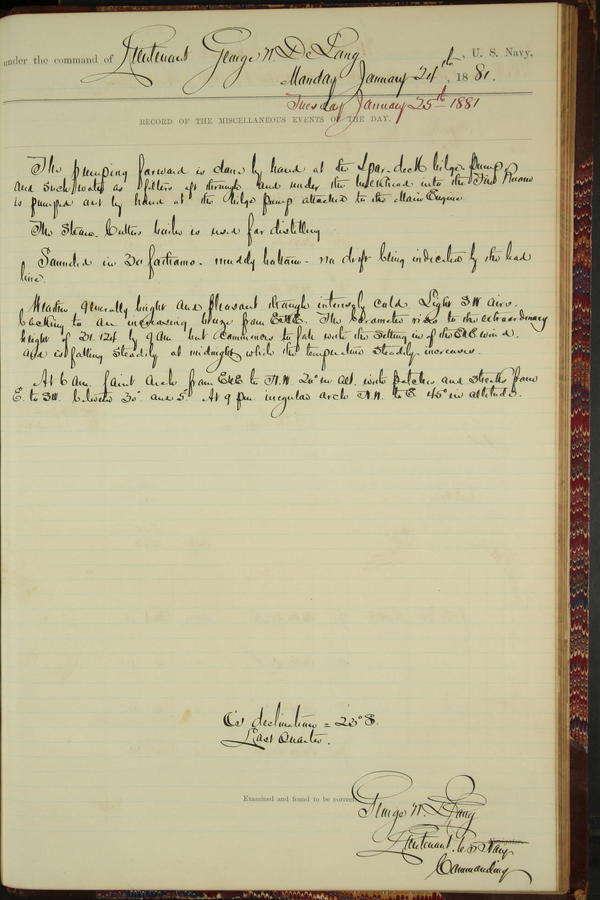 under the command of Lieutenant George W. De Long, U. S. Navy,
Monday January 24th, 1881.
Tuesday January 25th 1881
RECORD OF THE MISCELLANEOUS EVENTS OF THE DAY.
The pumping forward is done by hand at the Spar-deck bilge-Pump,
and such water as filters aft through and under the bulkhead into the Fire Room
is pumped out by hand at the bilge pump attached to the Main Engine
The Steam Cutters boiler is used for distilling
Sounded in 30 fathoms - muddy bottom - no drift being indicated by the lead
line.
Weather generally bright and pleasant though intensely cold. Light SW airs.
backing to an increasing breeze from ESE. The barometer rises to the extraordinary
height of 31.124 by 9 am but commences to fall with the setting in of the ESE wind,
and is falling steadily at midnight while the temperature steadily increases.
At 6 am. faint arch from ESE to N.W 20° in alt. with patches and streaks from
E. to SW. between 30° and 5°. At 9 pm. irregular arch N.W. to E. 45° in altitude.
C's declination = 23° S.
Last Quarter.
Examined and found to be correct.
George W. De Long
Lieutenant U.S Navy
Navigator.
Commanding